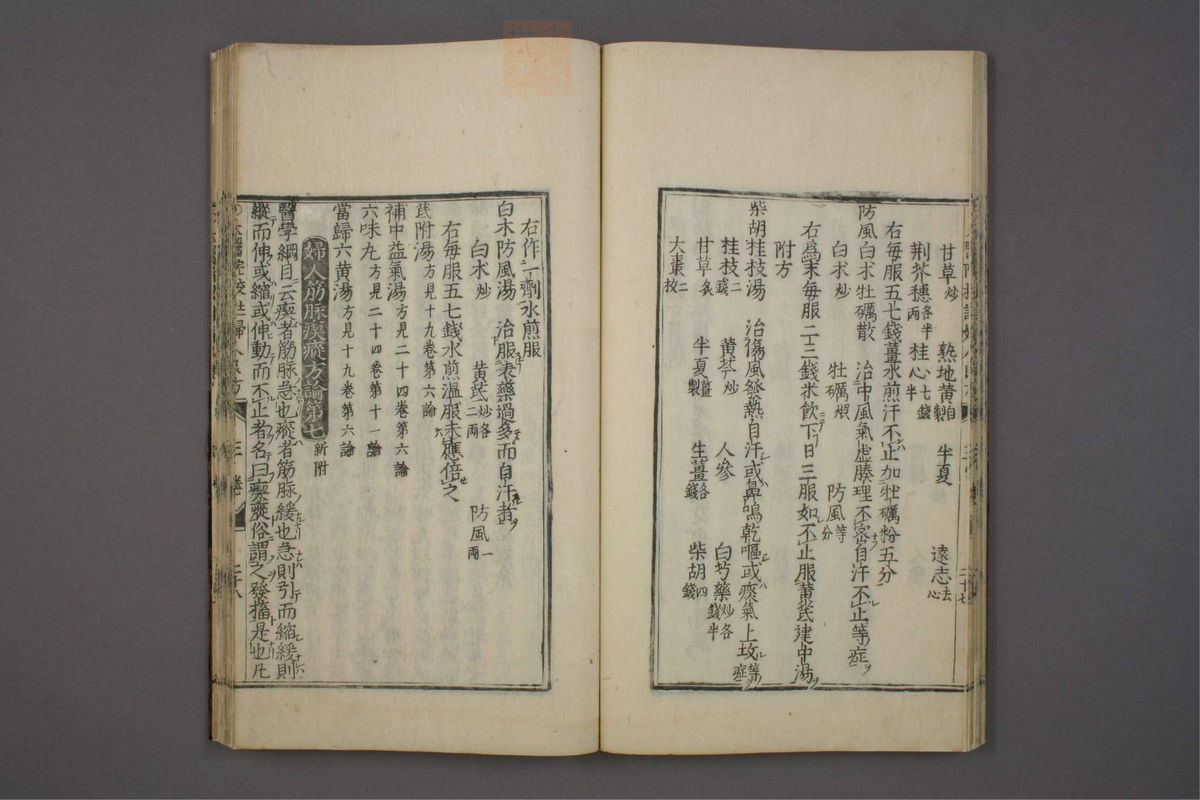 甘草炒 熟地黄自製 半夏 遠志去心
荆芥穗各半兩 桂心七錢半
右每服五七錢薑水煎汗不止加牡礪粉五分
防風白朮牡礪散 治中風氣虛腠理不密自汗不止等症
白朮炒 牡礪煆 防風等分
右爲末每服二三錢米飲下日三服如不止服黄茋建中湯
附方
柴胡桂枝湯 治傷風發熱自汗或鼻鳴乾嘔或痰氣上攻等症
桂枝二錢 黄芩炒 人參 白芍藥炒各錢半
甘草炙 半夏薑製 生薑各錢 柴胡四錢
大棗二枚
右作一劑水煎服
白朮防風湯 治服表藥過多而自汗者
白朮炒 黄茋炒各二兩 防風一兩
右每服五七錢水煎溫服未應倍之
茋附湯方見十九卷第六論
補中益氣湯方見二十四卷第六論
六味丸方見二十四卷第十一論
當歸六黄湯方見十九卷第六論
婦人筋脉瘈瘲方論第七新附
醫學綱目云瘈者筋脉急也瘲者筋脉緩也急則引而縮緩則
縱而伸或縮或伸動而不止者名曰瘈瘲俗謂之發搐是也凡
三卷 二十八